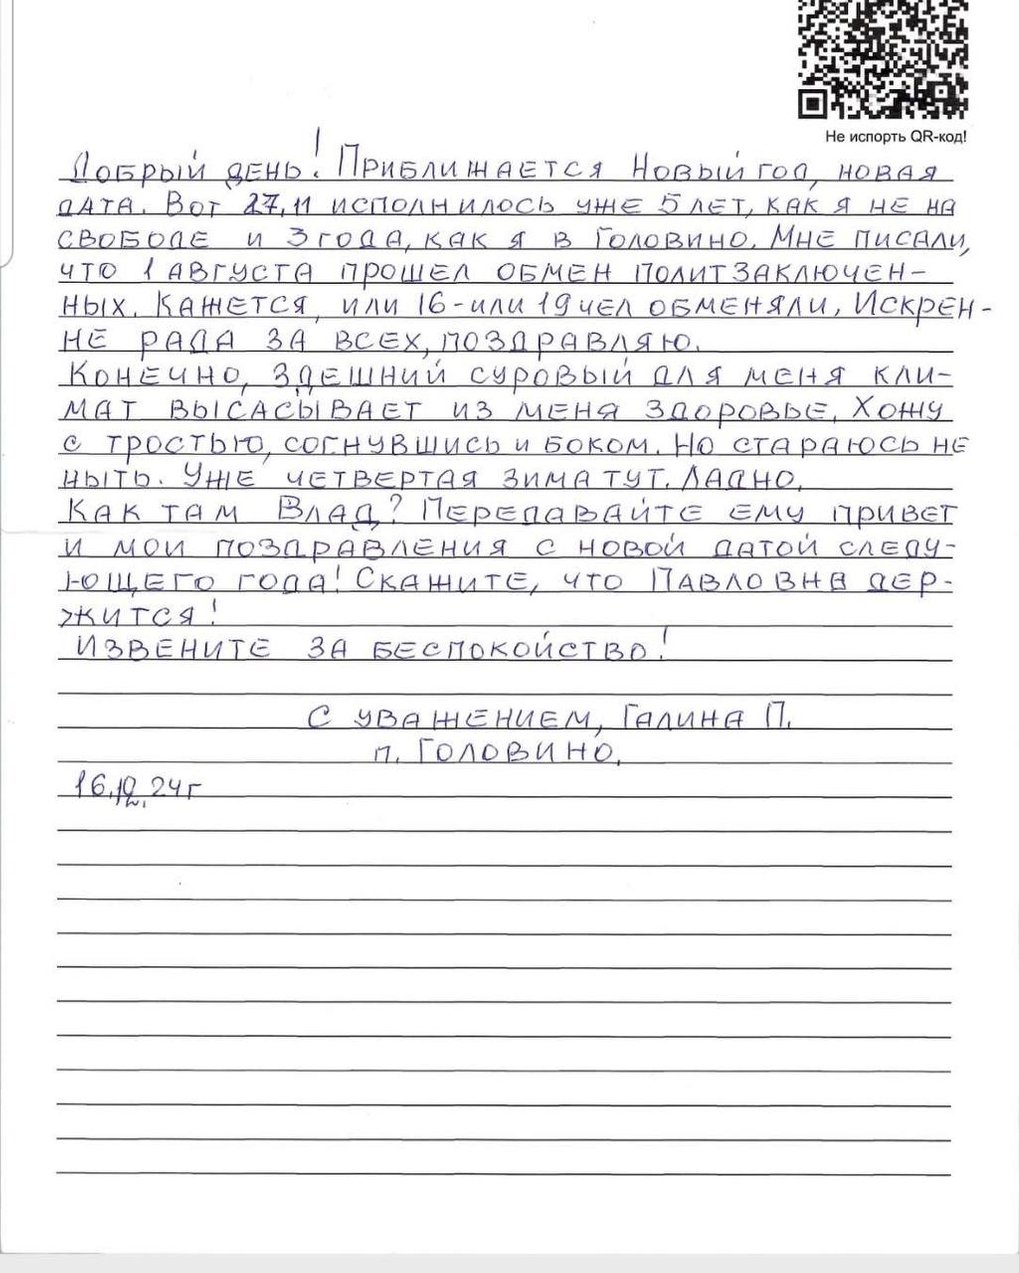 Не испорть QR-код!
Добрый день! Приближается Новый год, новая
дата. Вот 27.11 исполнилось уже 5 лет, как я не на
свободе и 3 года, как я в Головино. Мне писали,
что 1 августа прошел обмен политзаключен-
ных. Кажется, или 16 - или 19 чел обменяли. Искрен-
не рада за всех, поздравляю.
Конечно, здешний суровый для меня кли-
мат высасывает из меня здоровье. Хожу
с тростью, согнувшись и боком. Но стараюсь не
ныть. Уже четвертая зима тут. Ладно.
Как там Влад? Передавайте ему привет
и мои поздравления с новой датой следу-
ющего года! Скажите, что Павловна дер-
жится!
Извените за беспокойство!
С уважением, Галина П.
п. Головино.
16.12.24г